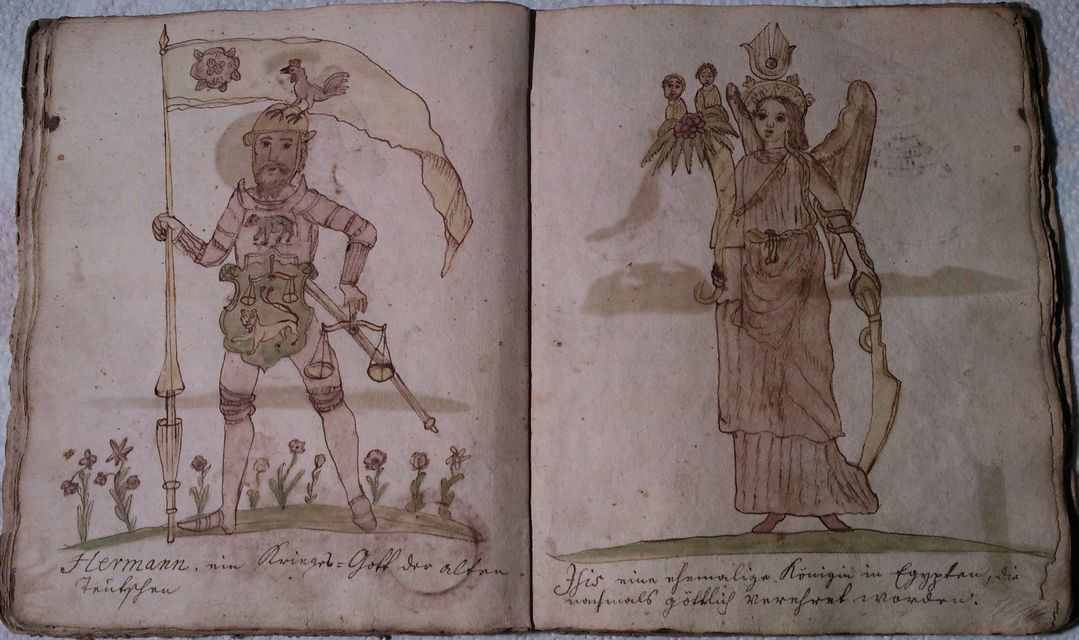 Hermann, ein Krieges=Gott der alten
Teütschen
Isis eine ehemalige Königin in Egypten, die
nachmals göttlich verehret worden.